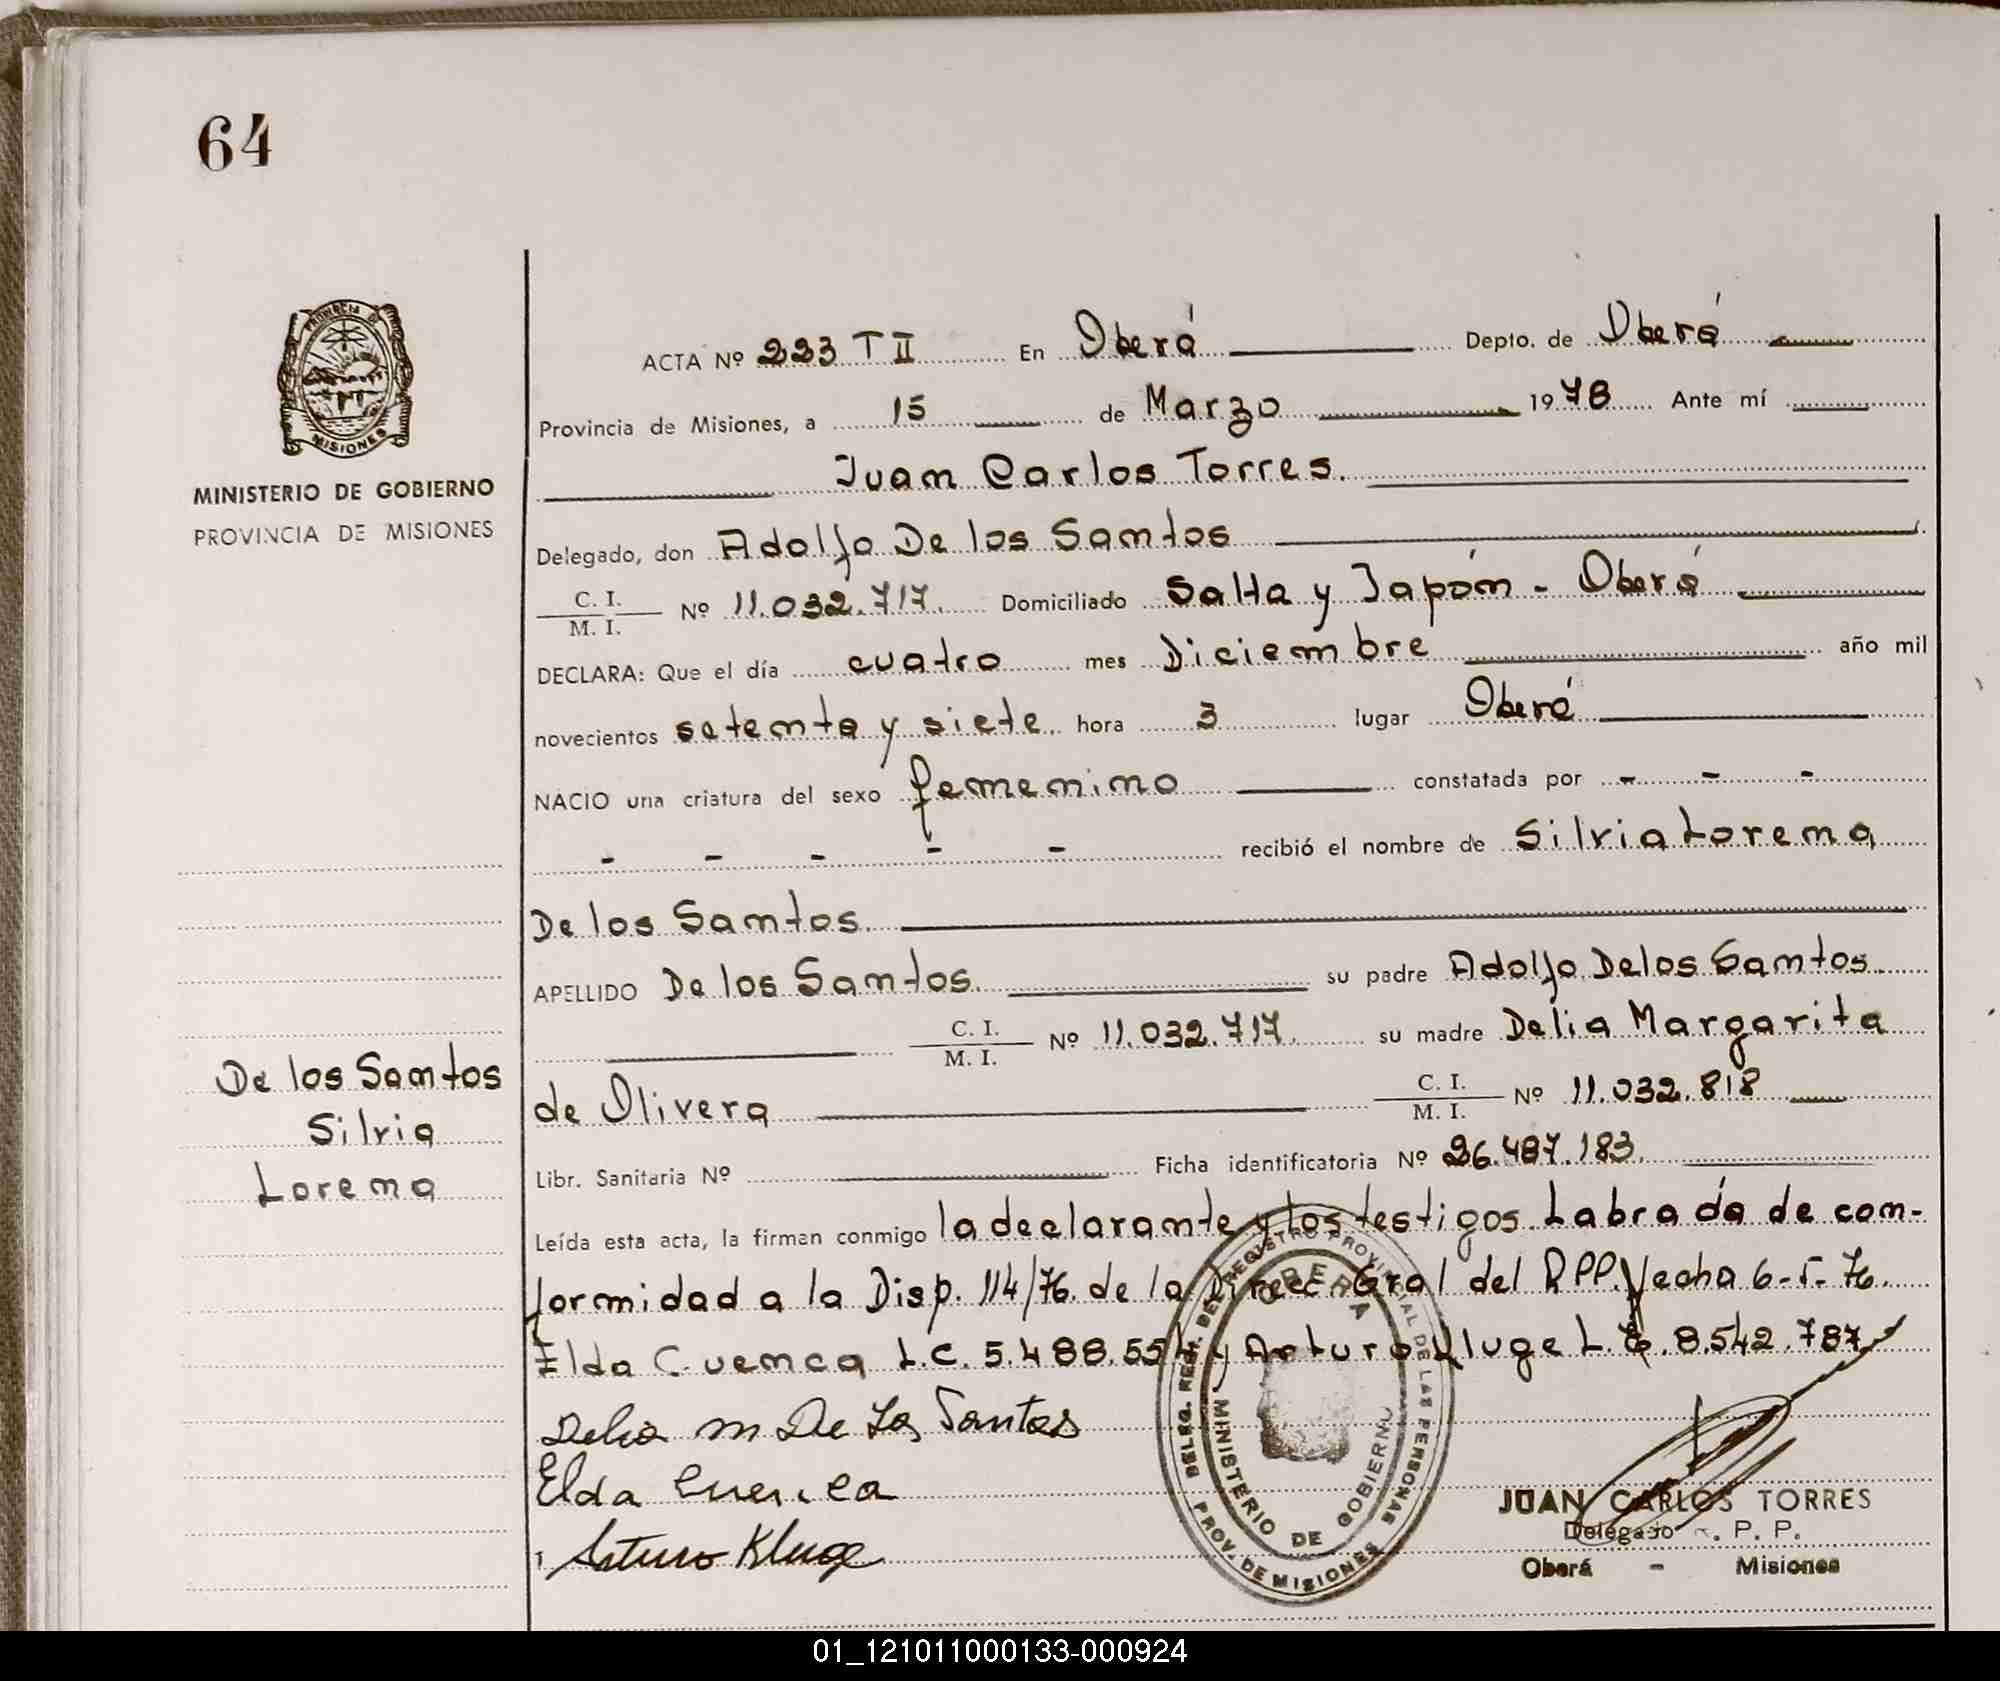 64
PROVINCIA DE
MISIONES
MINISTERIO DE GOBIERNO
PROVINCIA DE MISIONES
ACTA Nº 223 T II En Oberá Depto. de Oberá
Provincia de Misiones, a 15 de Marzo 1978 Ante mí
Juan Carlos Torres.
Delegado, don Adolfo De los Santos
C. I. / M. I. Nº 11.032.717. Domiciliado Salta y Japón - Oberá
DECLARA: Que el día cuatro mes Diciembre año mil
novecientos setenta y siete. hora 3 lugar Oberá
NACIO una criatura del sexo femenino constatada por - - -
- - - - - recibió el nombre de Silvia Lorena
De los Santos.
APELLIDO De los Santos. su padre Adolfo De los Santos.
C. I. / M. I. Nº 11.032.717. su madre Delia Margarita
de Olivera C. I. / M. I. Nº 11.032.818
Libr. Sanitaria Nº Ficha identificatoria Nº 26.487.183.
Leída esta acta, la firman conmigo la declarante y los testigos. Labrada de con-
formidad a la Disp. 114/76. de la Direcc Gral del RPP. fecha 6-5-76.
Elda Cuenca L.C. 5.488.554 y Arturo Kluge L.E. 8.542.787
De los Santos
Silvia
Lorena
Delia M De Los Santos
Elda Cuenca
Arturo Kluge
DELEG. REG. DEL REGISTRO PROVINCIAL DE LAS PERSONAS
OBERA
MINISTERIO DE GOBIERNO
PROV. DE MISIONES
JUAN CARLOS TORRES
Delegado R. P. P.
Oberá - Misiones
01_121011000133-000924